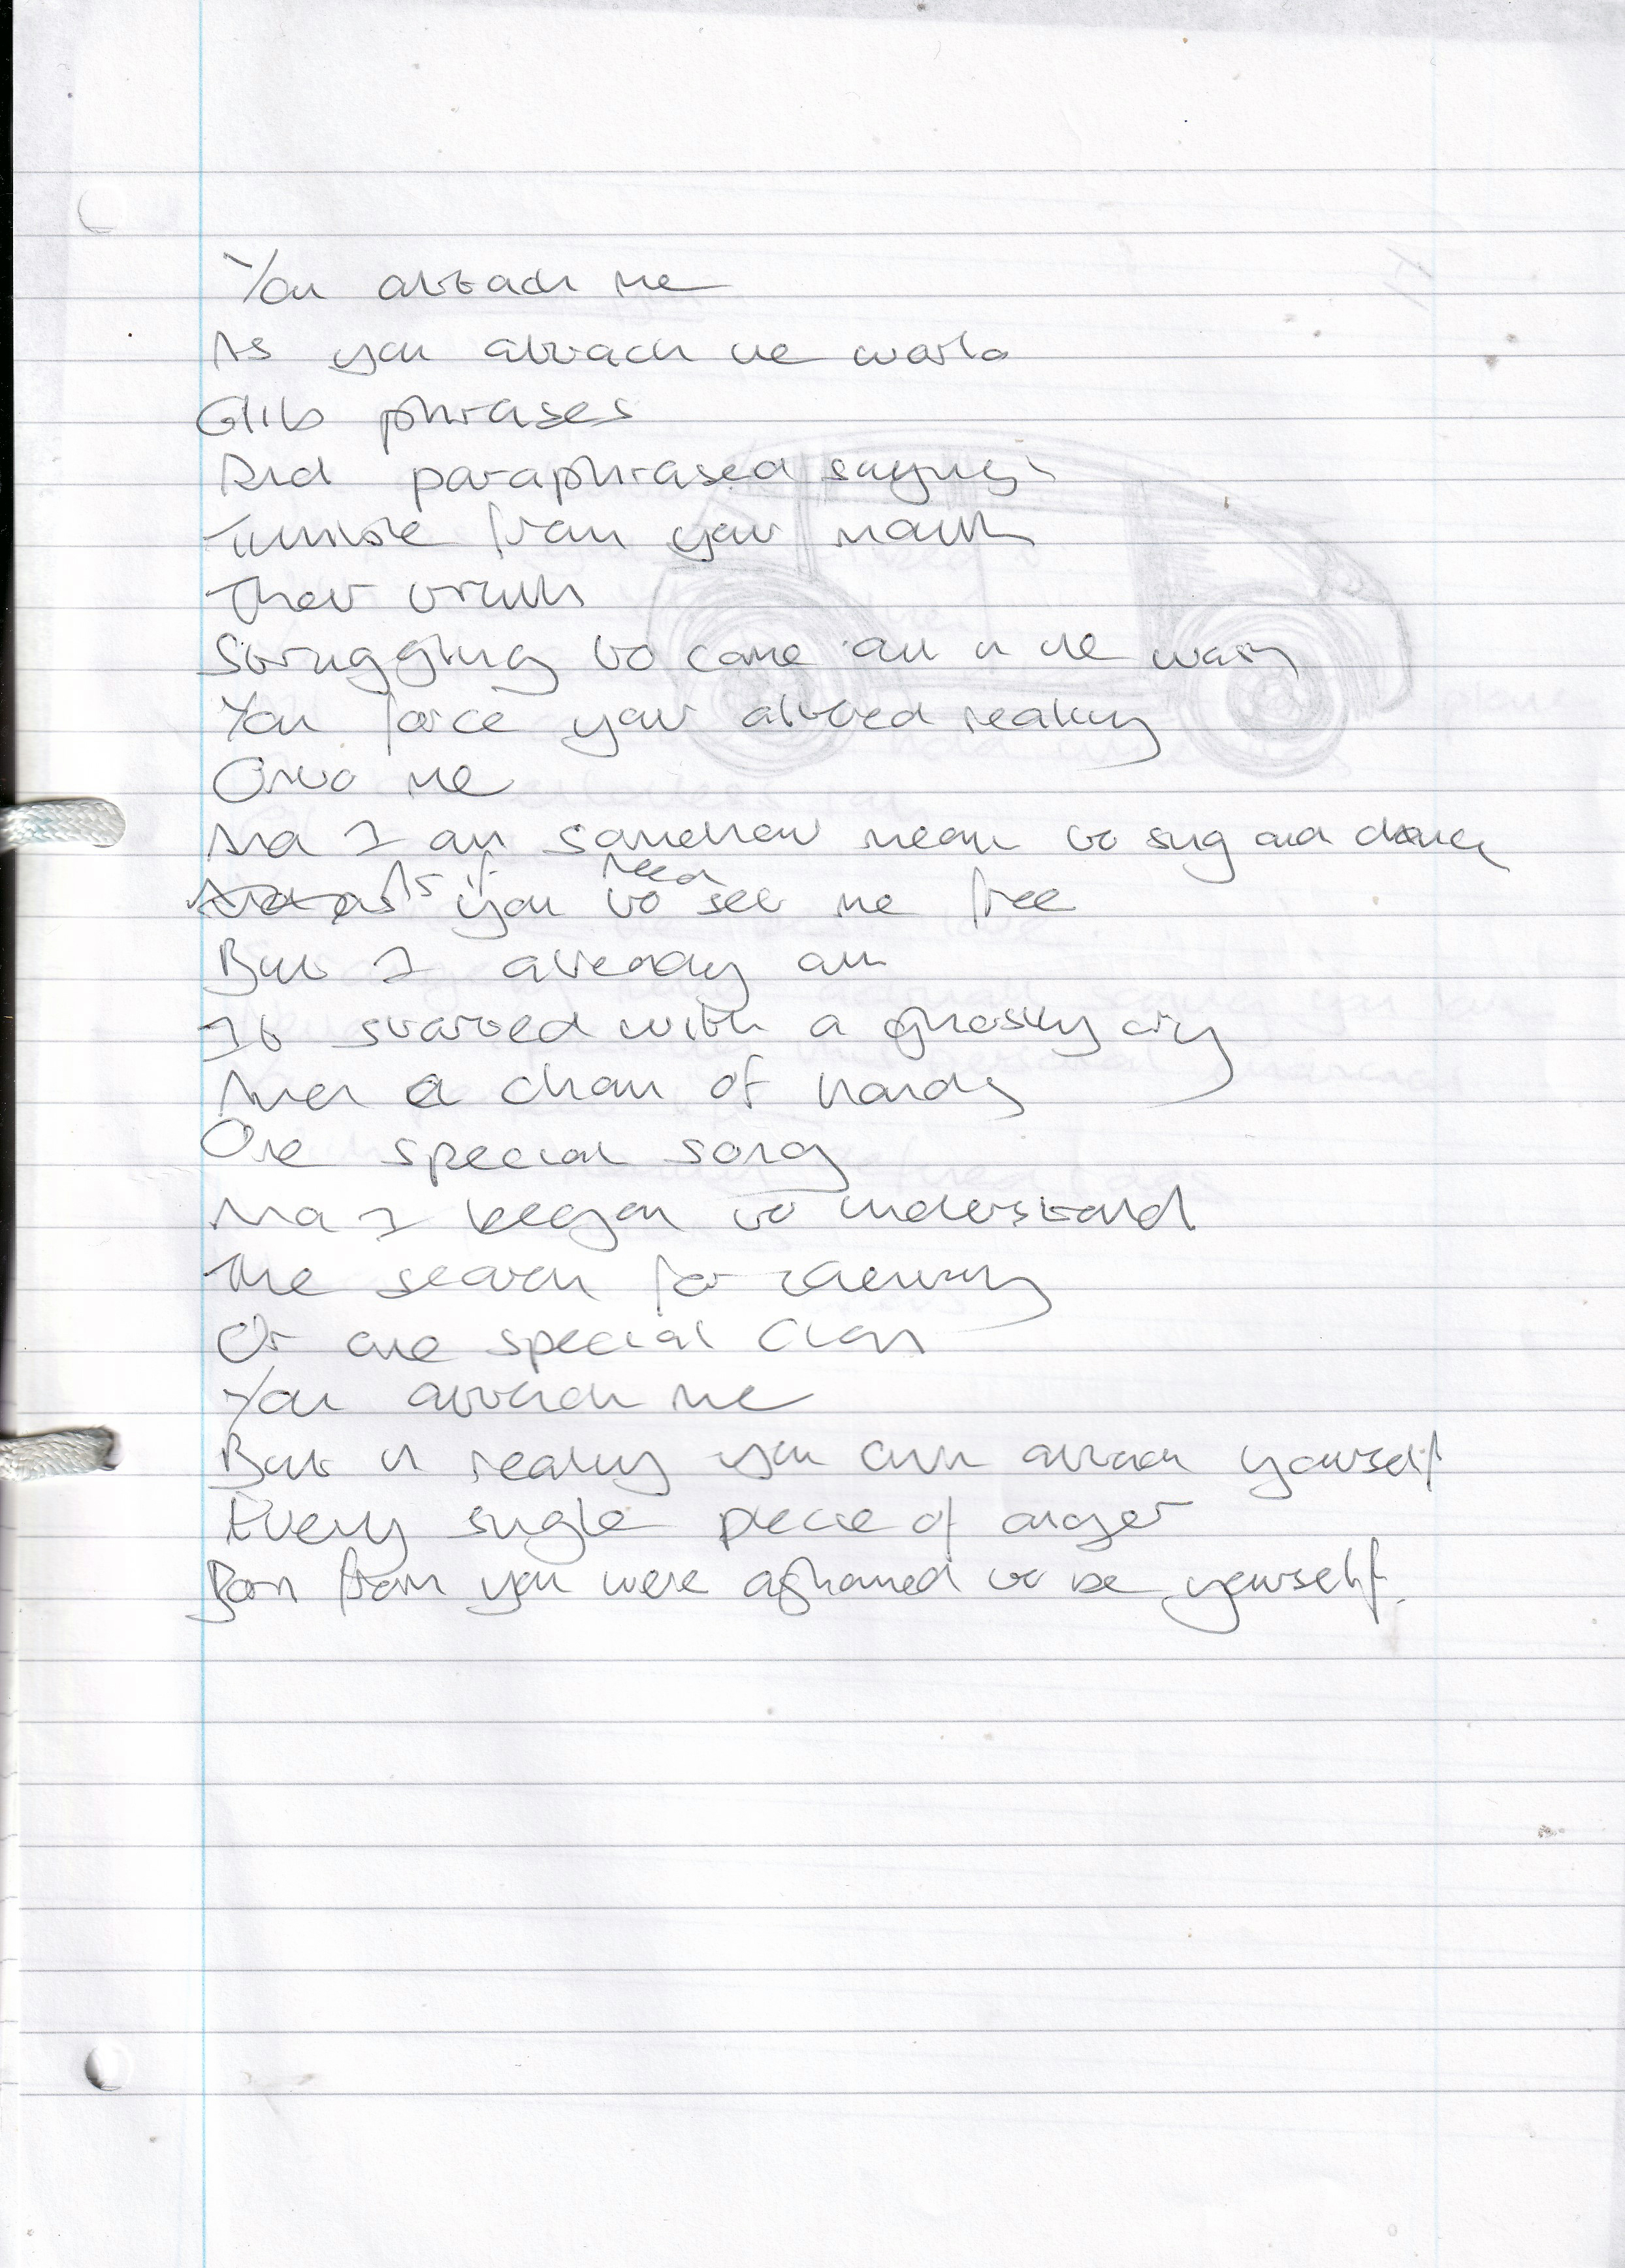 You attack me
As you attack the world
Glib phrases
And paraphrased sayings
Tumble from your mouth
Their truth
Struggling to come out in the wash
You force your altered reality
Onto me
And I am somehow meant to sing and dance
As if you need to see me free
But I already am
It started with a ghostly cry
And a chain of hands
One special song
And I began to understand
The search for identity
Or one special clan
You attack me
But in reality you attack yourself
Every single piece of anger
Born from you were ashamed to be yourself.